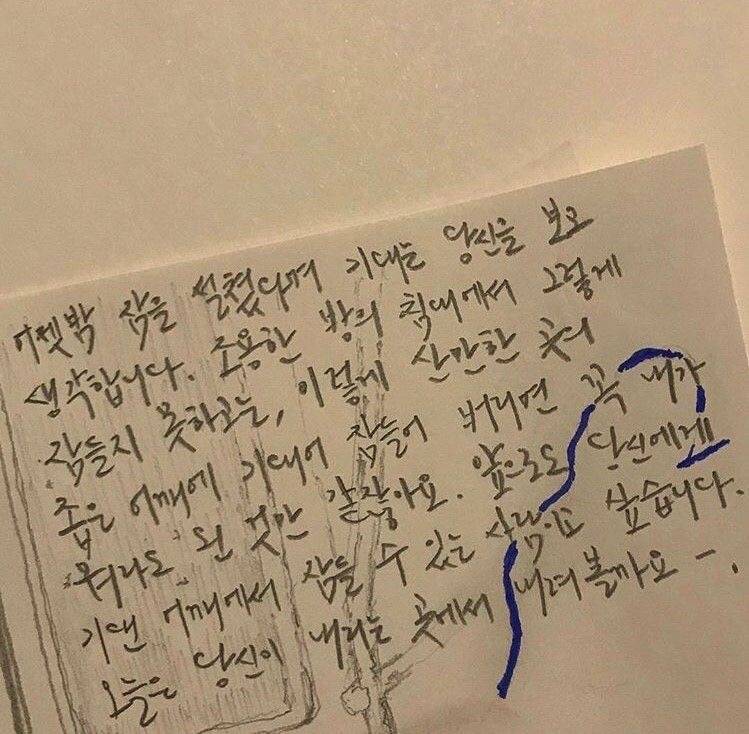 어젯밤 잠을 설쳤다며 기대는 당신을 보고
생각합니다. 조용한 방의 침대에서 그렇게
잠들지 못하고는, 이렇게 산만한 곳의
좁은 어깨에 기대어 잠들어 버리면 꼭 내가
뭐라도 된 것만 같잖아요. 앞으로도 당신에게
기댄 어깨에서 잠들 수 있는 사람이고 싶습니다.
오늘은 당신이 내리는 곳에서 내려볼까요 -.